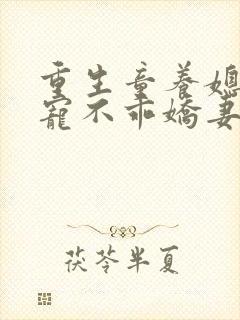 重生童养媳
宠不乖娇妻
茯苓半夏